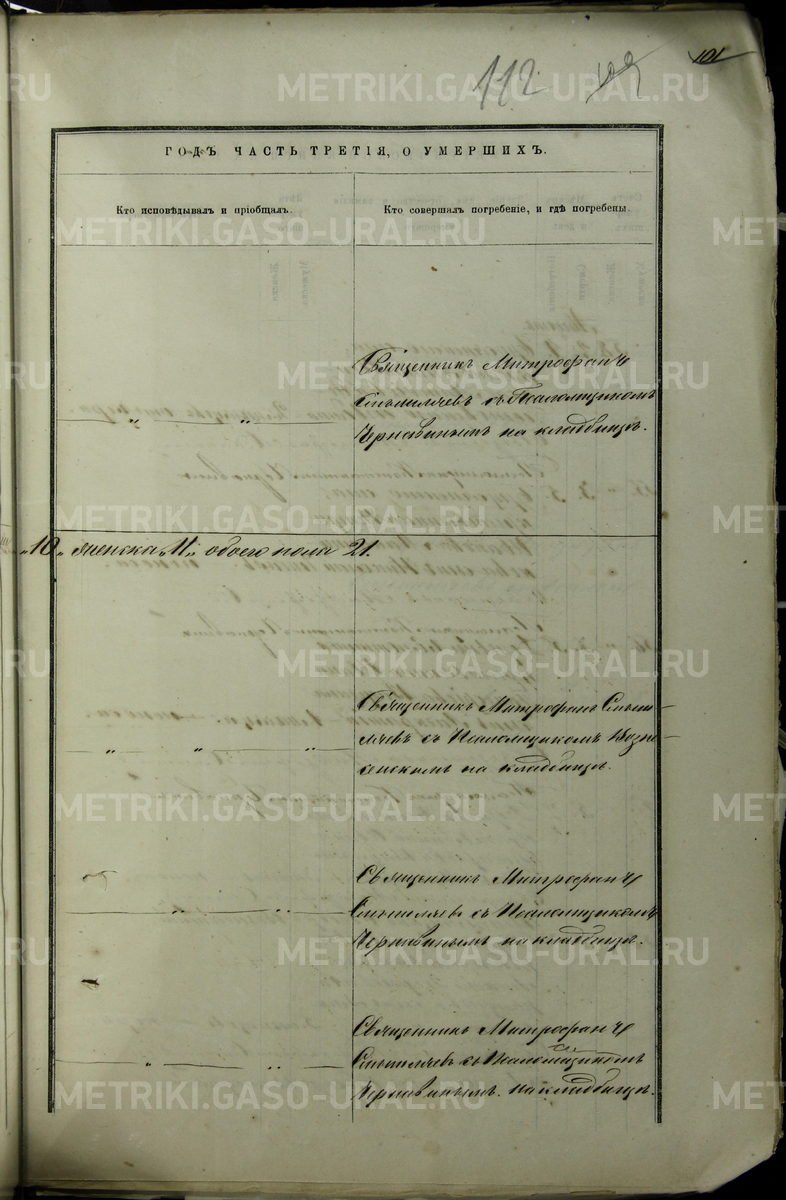 112 109 101
ГОДЪ ЧАСТЬ ТРЕТІЯ, О УМЕРШИХЪ.
Кто исповѣдывалъ и пріобщалъ.
Кто совершалъ погребеніе, и гдѣ погребены.
Священникъ Митрофанъ
съ Псаломщикомъ
Чернавинымъ на кладбищѣ.
„10„ женска „11„ обоего пола 21.
Священникъ Митрофанъ
съ Псаломщикомъ Возне-
сенскимъ на кладбищѣ.
Священникъ Митрофанъ
съ Псаломщикомъ
Чернавинымъ на кладбищѣ.
Священникъ Митрофанъ
съ Псаломщикомъ
Чернавинымъ на кладбищѣ.
METRIKI.GASO-URAL.RU